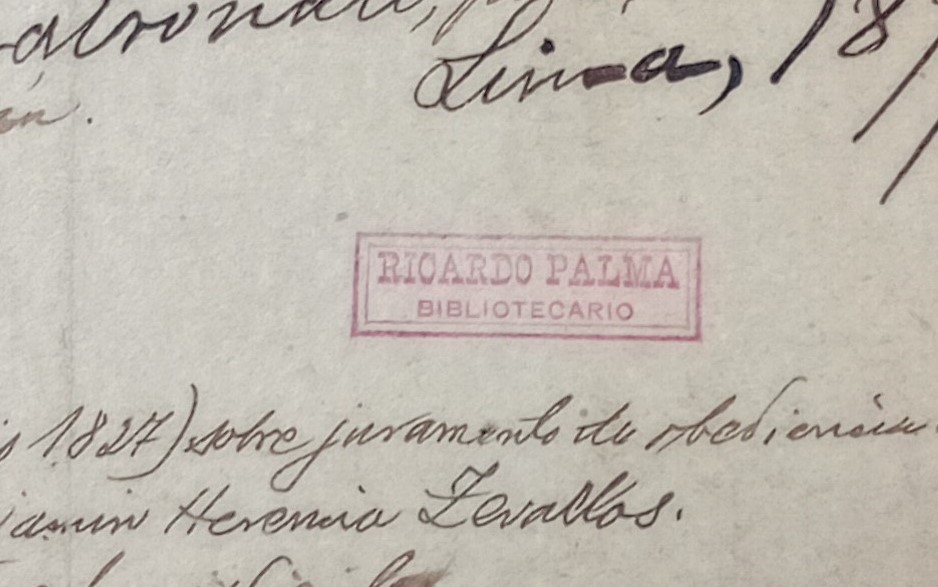 Lima, 18
RICARDO PALMA
BIBLIOTECARIO
1827) sobre juramento de obediencia
Herencia Zevallos.